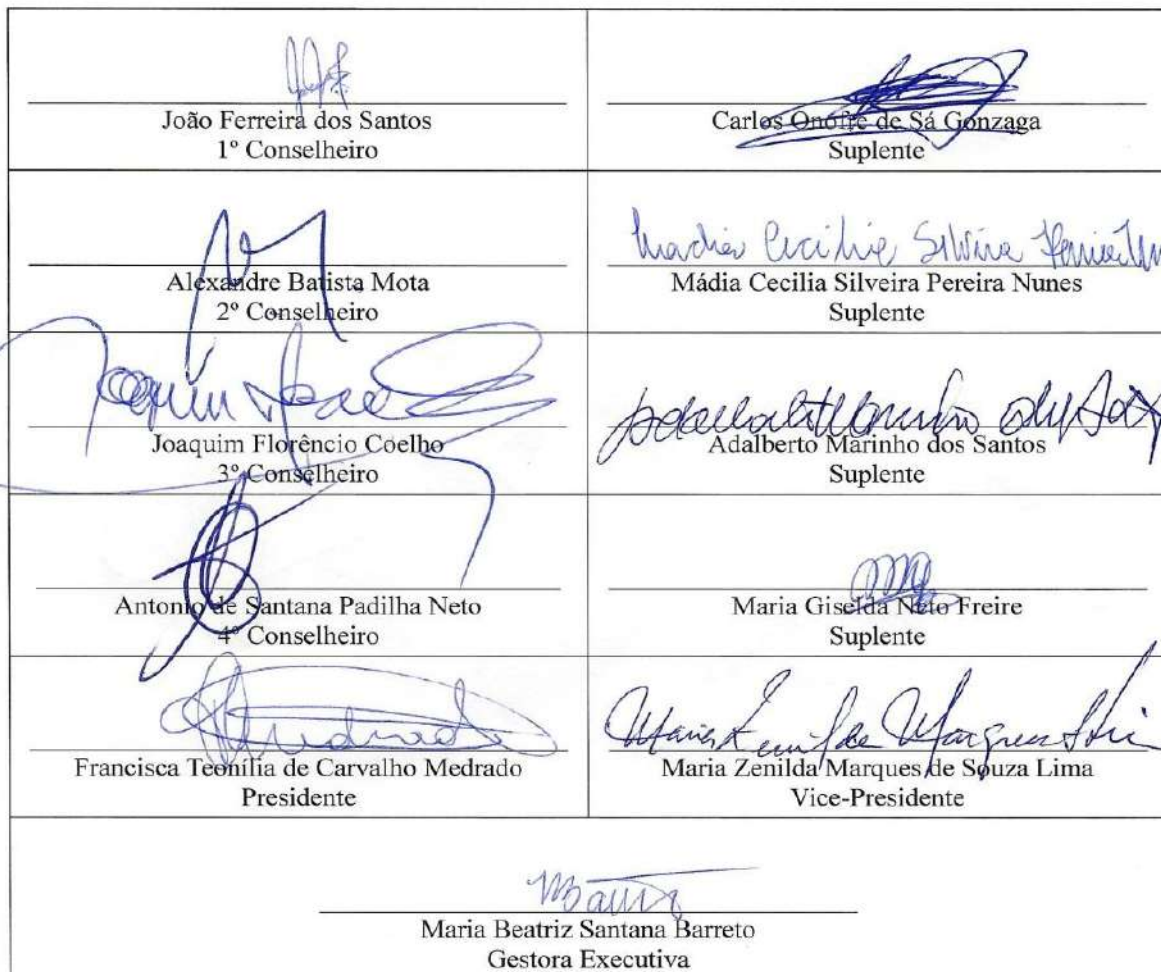 João Ferreira dos Santos
1º Conselheiro
Carlos Onofre de Sá Gonzaga
Suplente
Alexandre Batista Mota
2º Conselheiro
Mádia Cecilia Silveira Pereira Nunes
Suplente
Joaquim Florêncio Coelho
3º Conselheiro
Adalberto Marinho dos Santos
Suplente
Antonio de Santana Padilha Neto
4º Conselheiro
Maria Giselda Neto Freire
Suplente
Francisca Teonília de Carvalho Medrado
Presidente
Maria Zenilda Marques de Souza Lima
Vice-Presidente
Maria Beatriz Santana Barreto
Gestora Executiva